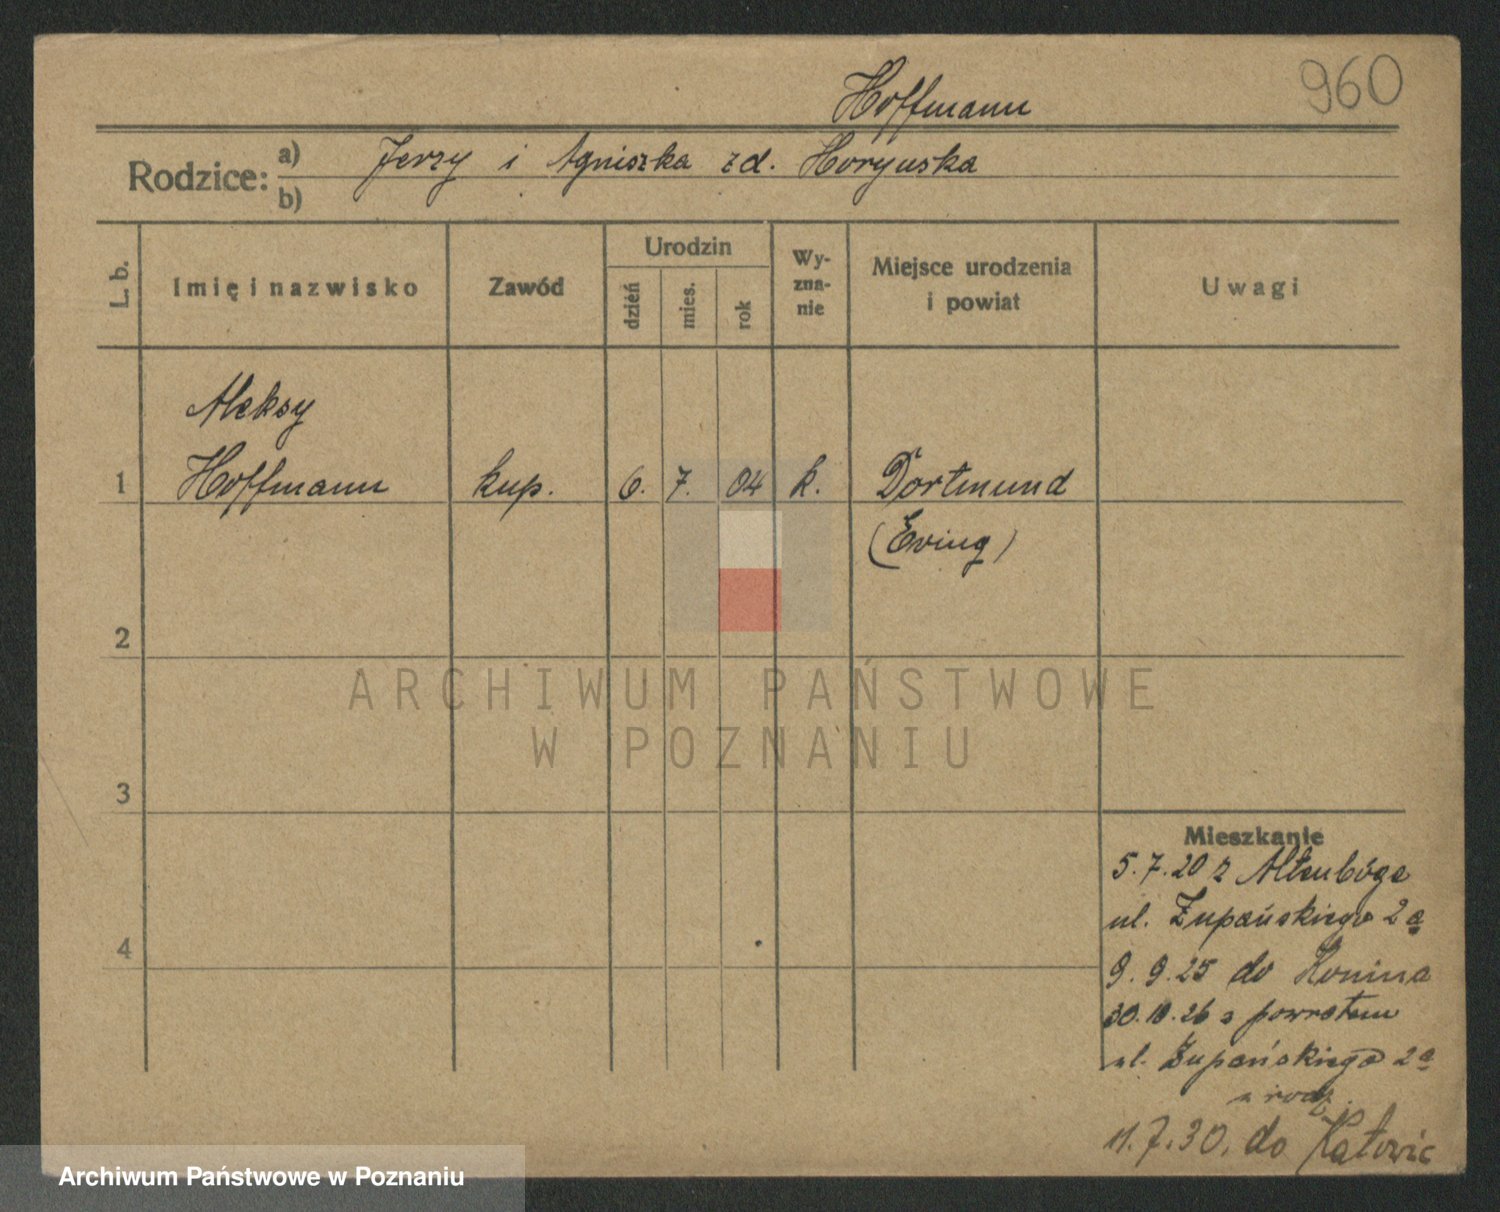 960
Hoffmann
Rodzice: a) Jerzy i Agniszka zd. Horynska
b)
L. b.
Imię i nazwisko
Zawód
Urodzin
dzień
mies.
rok
Wy-
zna-
nie
Miejsce urodzenia
i powiat
Uwagi
Aleksy
1 Hoffmann kup. 6. 7. 04 k. Dortmund
(Eving)
2
3
4
Mieszkanie
5.7.20 z Altenböge
ul. Żupańskiego 2a
9.9.25 do Konina
30.10.26 z powrotem
ul. Żupańskiego 2a
u rodz.
11.7.30. do Katowic
ARCHIWUM PAŃSTWOWE
W POZNANIU
Archiwum Państwowe w Poznaniu